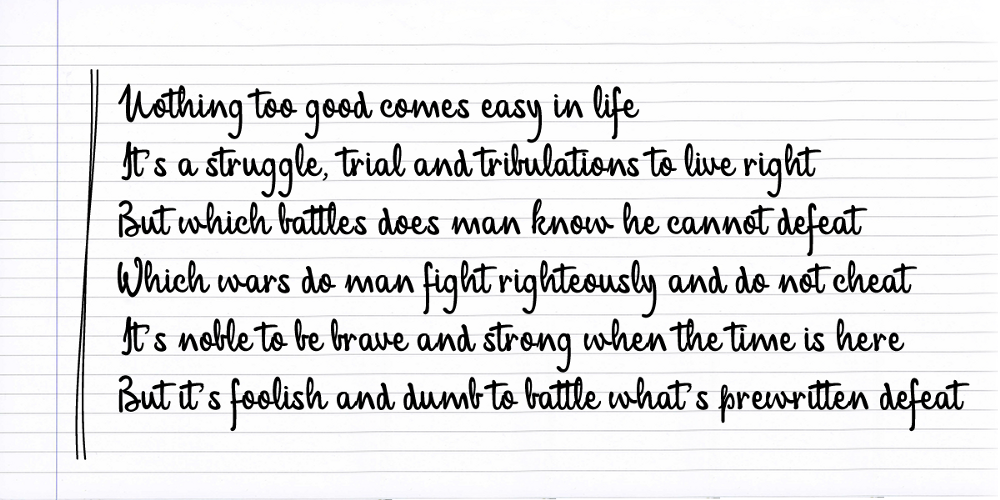 Nothing too good comes easy in life
It's a struggle, trial and tribulations to live right
But which battles does man know he cannot defeat
Which wars do man fight righteously and do not cheat
It's noble to be brave and strong when the time is here
But it's foolish and dumb to battle what's prewritten defeat